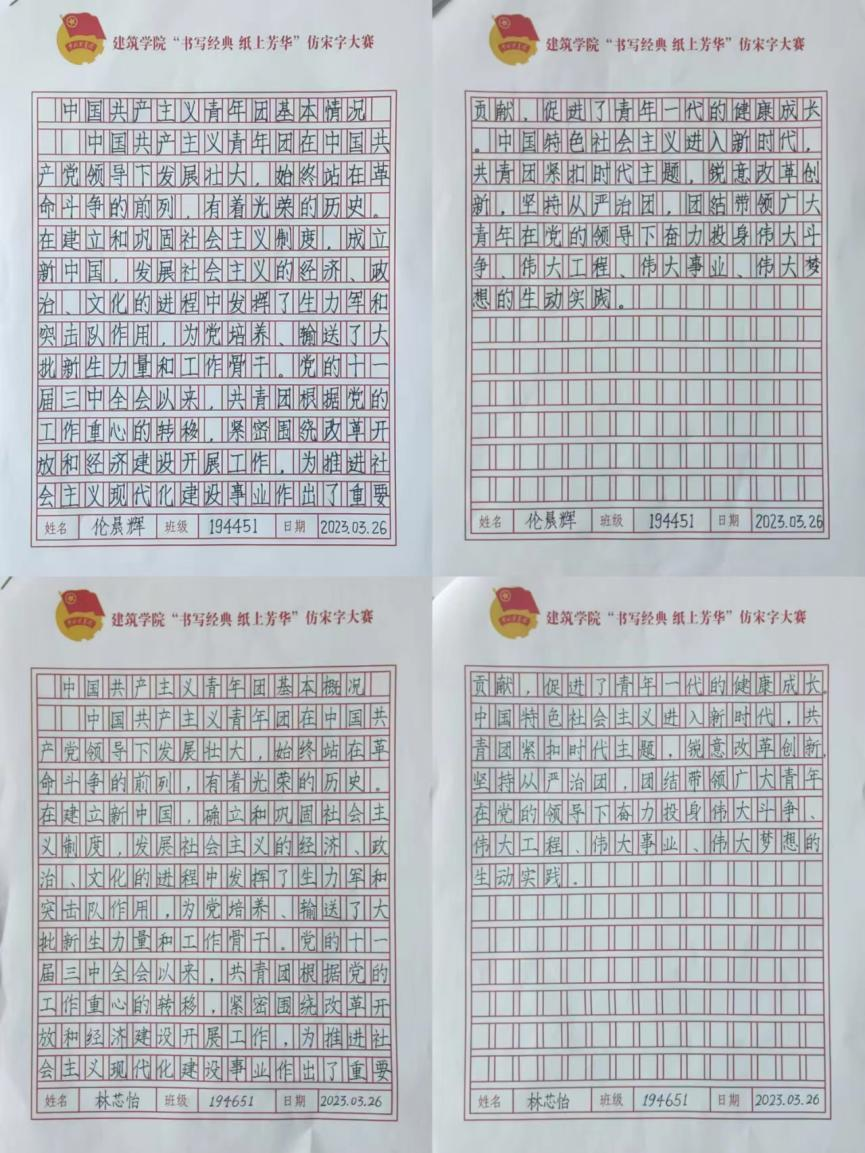 建筑学院“书写经典 纸上芳华”仿宋字大赛
中国共产主义青年团基本情况
中国共产主义青年团在中国共
产党领导下发展壮大，始终站在革
命斗争的前列，有着光荣的历史。
在建立和巩固社会主义制度，成立
新中国，发展社会主义的经济、政
治、文化的进程中发挥了生力军和
突击队作用，为党培养、输送了大
批新生力量和工作骨干。党的十一
届三中全会以来，共青团根据党的
工作重心的转移，紧密围绕改革开
放和经济建设开展工作，为推进社
会主义现代化建设事业作出了重要
姓名 伦晨辉 班级 194451 日期 2023.03.26
建筑学院“书写经典 纸上芳华”仿宋字大赛
贡献，促进了青年一代的健康成长
。中国特色社会主义进入新时代，
共青团紧扣时代主题，锐意改革创
新，坚持从严治团，团结带领广大
青年在党的领导下奋力投身伟大斗
争、伟大工程、伟大事业、伟大梦
想的生动实践。
姓名 伦晨辉 班级 194451 日期 2023.03.26
建筑学院“书写经典 纸上芳华”仿宋字大赛
中国共产主义青年团基本概况
中国共产主义青年团在中国共
产党领导下发展壮大，始终站在革
命斗争的前列，有着光荣的历史。
在建立新中国，确立和巩固社会主
义制度，发展社会主义的经济、政
治、文化的进程中发挥了生力军和
突击队作用，为党培养、输送了大
批新生力量和工作骨干。党的十一
届三中全会以来，共青团根据党的
工作重心的转移，紧密围绕改革开
放和经济建设开展工作，为推进社
会主义现代化建设事业作出了重要
姓名 林芯怡 班级 194651 日期 2023.03.26
建筑学院“书写经典 纸上芳华”仿宋字大赛
贡献，促进了青年一代的健康成长。
中国特色社会主义进入新时代，共
青团紧扣时代主题，锐意改革创新，
坚持从严治团，团结带领广大青年
在党的领导下奋力投身伟大斗争、
伟大工程、伟大事业、伟大梦想的
生动实践。
姓名 林芯怡 班级 194651 日期 2023.03.26